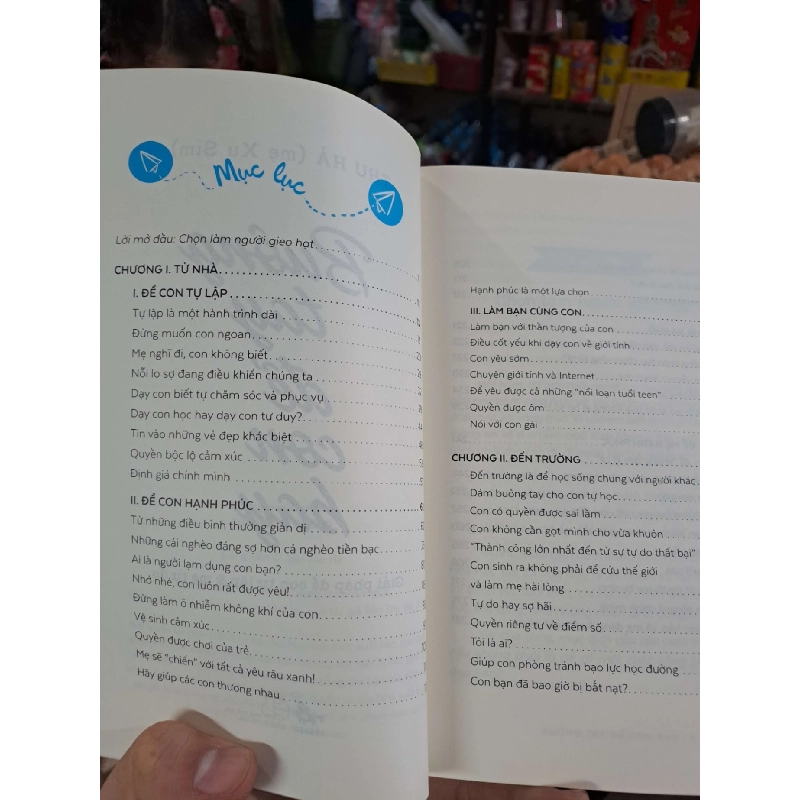 Mục lục
Lời mở đầu: Chọn làm người gieo hạt
CHƯƠNG I. TỪ NHÀ
I. ĐỂ CON TỰ LẬP
Tự lập là một hành trình dài
Đừng muốn con ngoan
Mẹ nghĩ đi, con không biết
Nỗi lo sợ đang điều khiển chúng ta
Dạy con biết tự chăm sóc và phục vụ
Dạy con học hay dạy con tư duy?
Tin vào những vẻ đẹp khác biệt
Quyền bộc lộ cảm xúc
Định giá chính mình
II. ĐỂ CON HẠNH PHÚC
Từ những điều bình thường giản dị
Những cái nghèo đáng sợ hơn cả nghèo tiền bạc
Ai là người lạm dụng con bạn?
Nhớ nhé, con luôn rất được yêu!
Đừng làm ô nhiễm không khí của con
Vệ sinh cảm xúc
Quyền được chơi của trẻ
Mẹ sẽ "chiến" với tất cả yêu râu xanh!
Hãy giúp các con thương nhau
Hạnh phúc là một lựa chọn
III. LÀM BẠN CÙNG CON
Làm bạn với thần tượng của con
Điều cốt yếu khi dạy con về giới tính
Con yêu sớm
Chuyện giới tính và Internet
Để yêu được cả những "nổi loạn tuổi teen"
Quyền được ôm
Nói với con gái
CHƯƠNG II. ĐẾN TRƯỜNG
Đến trường là để học sống chung với người khác
Dám buông tay cho con tự học
Con có quyền được sai lầm
Con không cần gọt mình cho vừa khuôn
"Thành công lớn nhất đến từ sự tự do thất bại"
Con sinh ra không phải để cứu thế giới
và làm mẹ hài lòng
Tự do hay sợ hãi
Quyền riêng tư về điểm số
Tôi là ai?
Giúp con phòng tránh bạo lực học đường
Con bạn đã bao giờ bị bắt nạt?